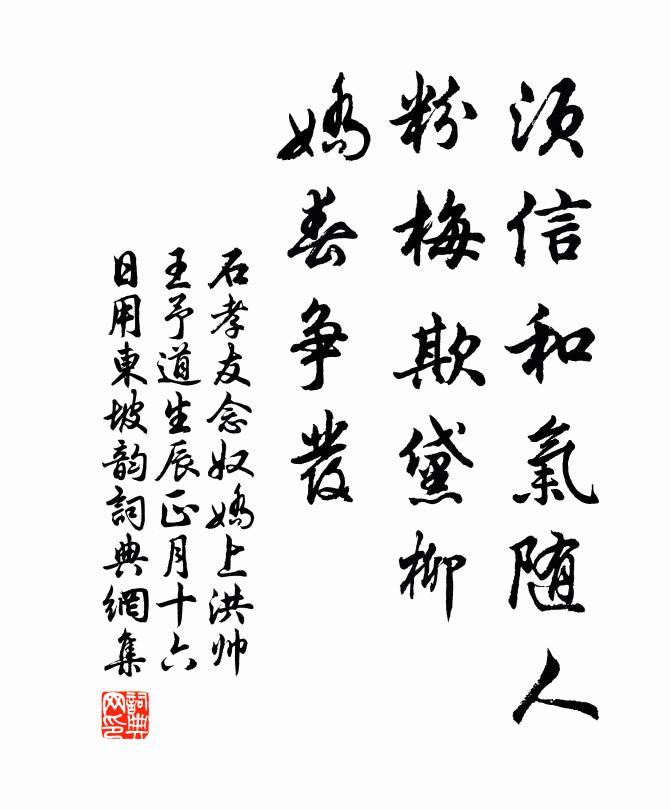 須信和氣随人
粉梅欺黛柳
嬌春爭發
石孝友念奴嬌上洪帅
王予道生辰正月十六
日用東坡韵詞典網集
詞典
网印